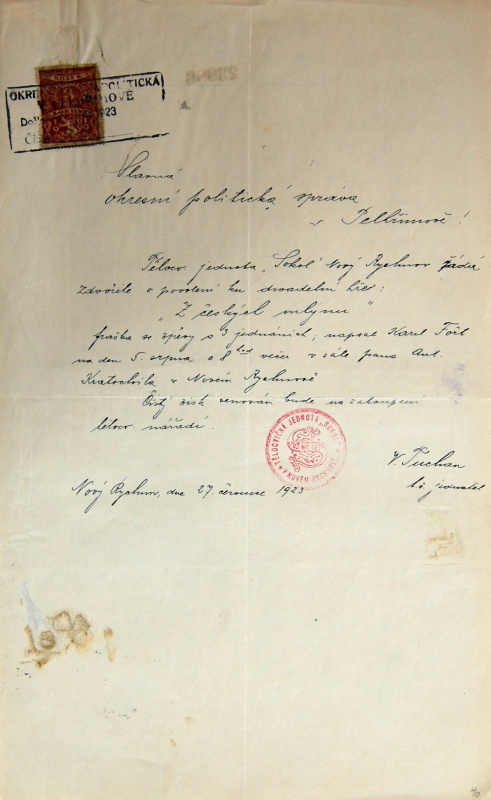 23986
OKRESNÍ POLITICKÁ
V PELHŘIMOVĚ
1923
Slavná
okresní politická správa
v Pelhřimově!
Tělocv. jednota „Sokol" Nový Rychnov žádá
zdvořile o povolení ku divadelní hře:
„Z českých mlýnů"
fraška se zpěvy o 3 jednáních, napsal Karel Fořt
na den 5. srpna o 8 hod večer v sále pana Ant.
Kratochvíla v Novém Rychnově
Čistý zisk věnován bude na zakoupení
tělocv. nářadí
TĚLOCVIČNÁ JEDNOTA „SOKOL"
V NOVÉM RYCHNOVĚ
V. Tuchan
t. č. jednatel
Nový Rychnov, dne 27. července 1923